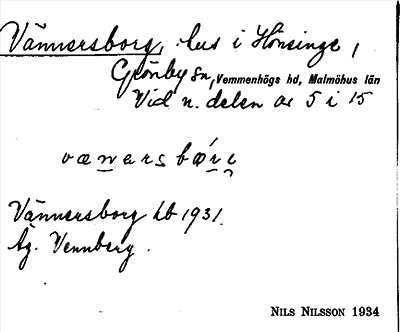 Vännersborg, hus i Hönsinge,
Grönby sn, Vemmenhögs hd, Malmöhus län
Vid n. delen av 5 i 15
Vännersborg hb 1931.
Äg. Vennberg.
NILS NILSSON 1934